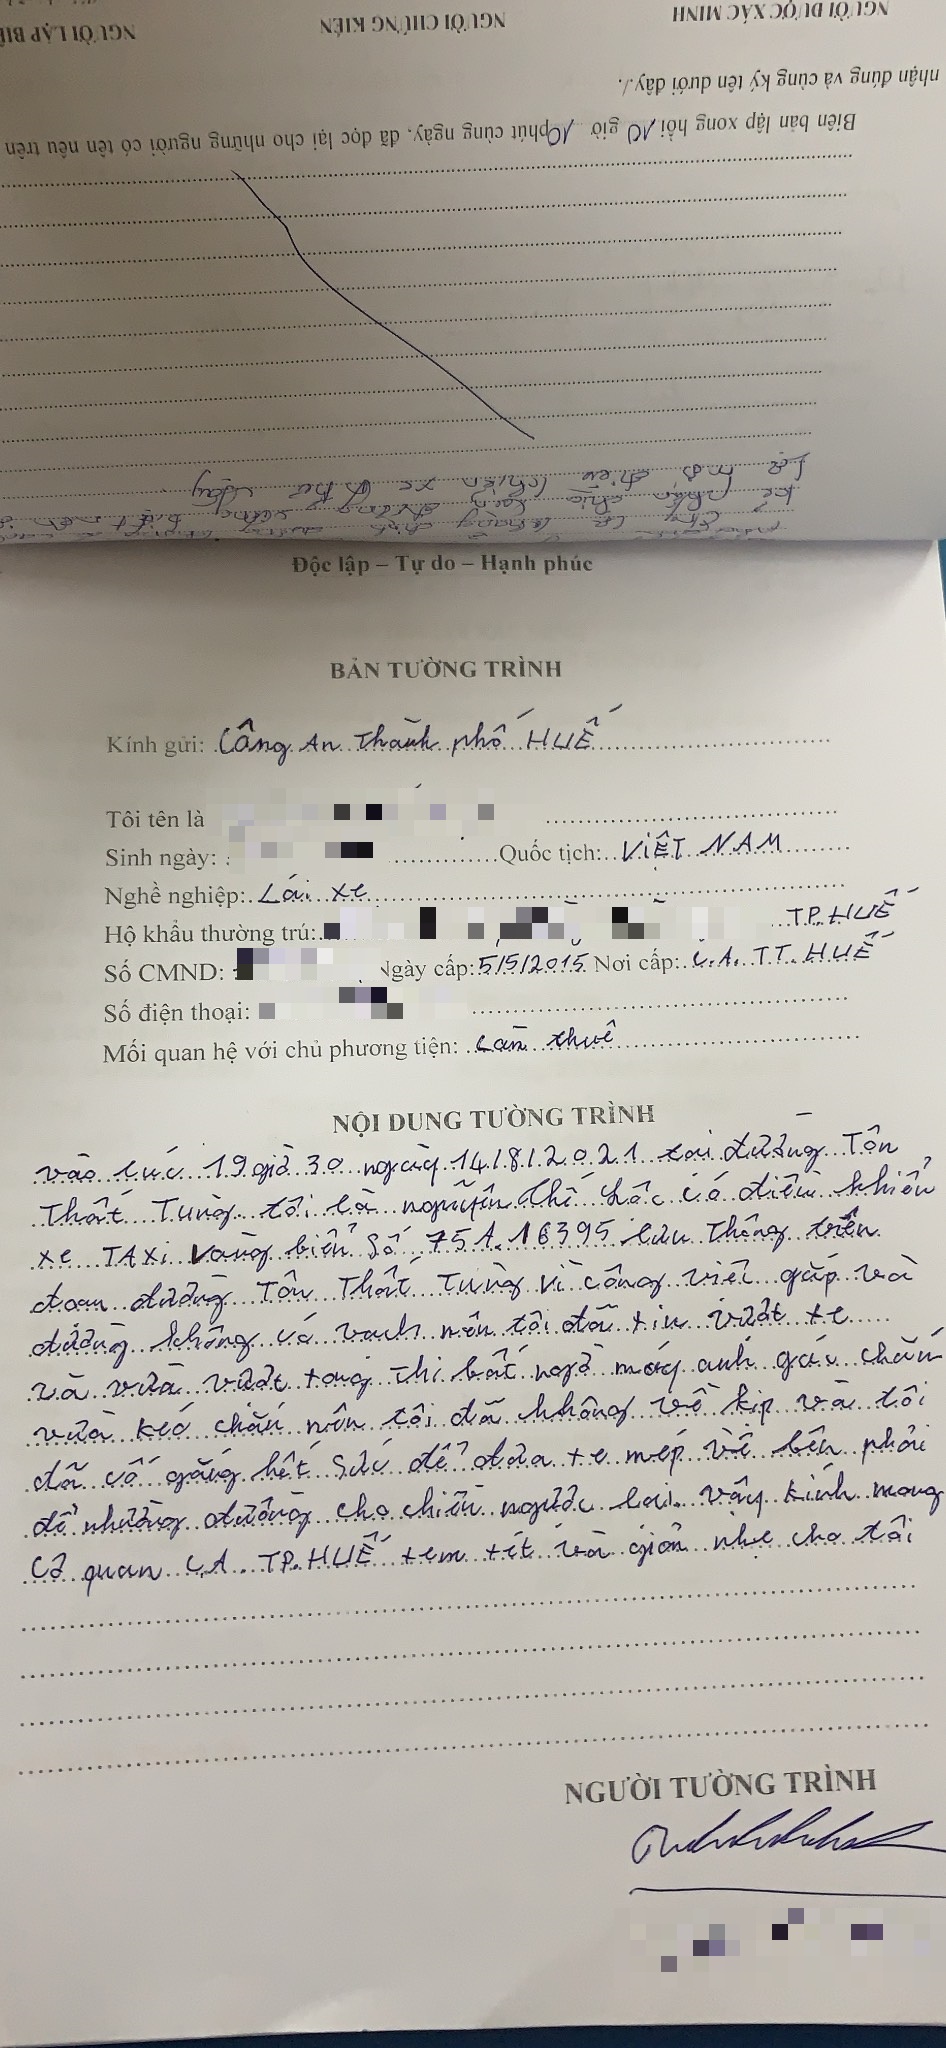 NGƯỜI ĐƯỢC XÁC MINH NGƯỜI CHỨNG KIẾN NGƯỜI LẬP BIÊ
nhận đúng và cùng ký tên dưới đây./.
Biên bản lập xong hồi 10 giờ 10 phút cùng ngày, đã đọc lại cho những người có tên nêu trên
Độc lập – Tự do – Hạnh phúc
BẢN TƯỜNG TRÌNH
Kính gửi: Công An Thành phố HUẾ
Tôi tên là
Sinh ngày: Quốc tịch: VIỆT NAM
Nghề nghiệp: Lái xe
Hộ khẩu thường trú: TP. HUẾ
Số CMND: Ngày cấp: 5/5/2015 Nơi cấp: C.A. T.T. HUẾ
Số điện thoại:
Mối quan hệ với chủ phương tiện: Làm thuê
NỘI DUNG TƯỜNG TRÌNH
vào lúc 19 giờ 30 ngày 14/8/2021 tại đường Tôn
Thất Tùng. tôi là nguyễn thế có điều khiển
xe TAXi vàng biển Số 75A.16395 lưu thông trên
đoạn đường Tôn Thất Tùng vì công việc gấp và
đường không có vạch nên tôi đã xin vượt xe
và vừa vượt xong thì bất ngờ mấy anh gác chắn
vừa kéo chắn nên tôi đã không về kịp và tôi
đã cố gắng hết Sức để đưa xe mép về bên phải
để nhường đường cho chiều ngược lại. vậy kính mong
Cơ quan C.A. TP. HUẾ xem xét và giản nhẹ cho tôi
NGƯỜI TƯỜNG TRÌNH